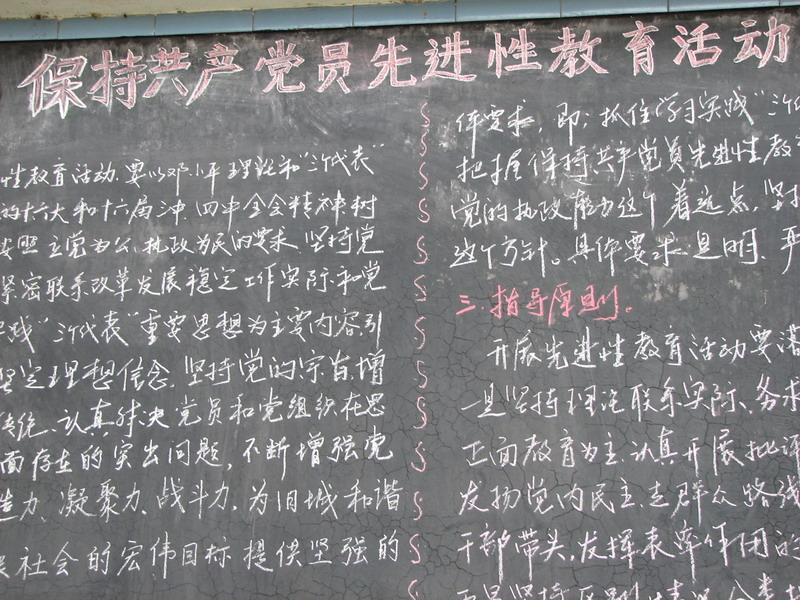 保持共产党员先进性教育活动
性教育活动.要以邓小平理论和"三个代表"
的十六大和十六届三中.四中全会精神.树
按照立党为公.执政为民的要求.坚持党
紧密联系改革发展稳定工作实际和党
实践"三个代表"重要思想为主要内容.引
坚定理想信念.坚持党的宗旨,增
传统.认真解决党员和党组织在思
面存在的突出问题,不断增强党
造力.凝聚力.战斗力.为旧城和谐
展社会的宏伟目标提供坚强的
体要求,即:抓住学习实践"三个代
把握保持共产党员先进性教育
党的执政能力这个着远点,坚持
这个方针。具体要求是明.严
三.指导原则。
开展先进性教育活动要
一是坚持理论联系实际、务求
正面教育为主.认真开展批评
发扬党内民主.走群众路线
干部带头.发挥表率作用的